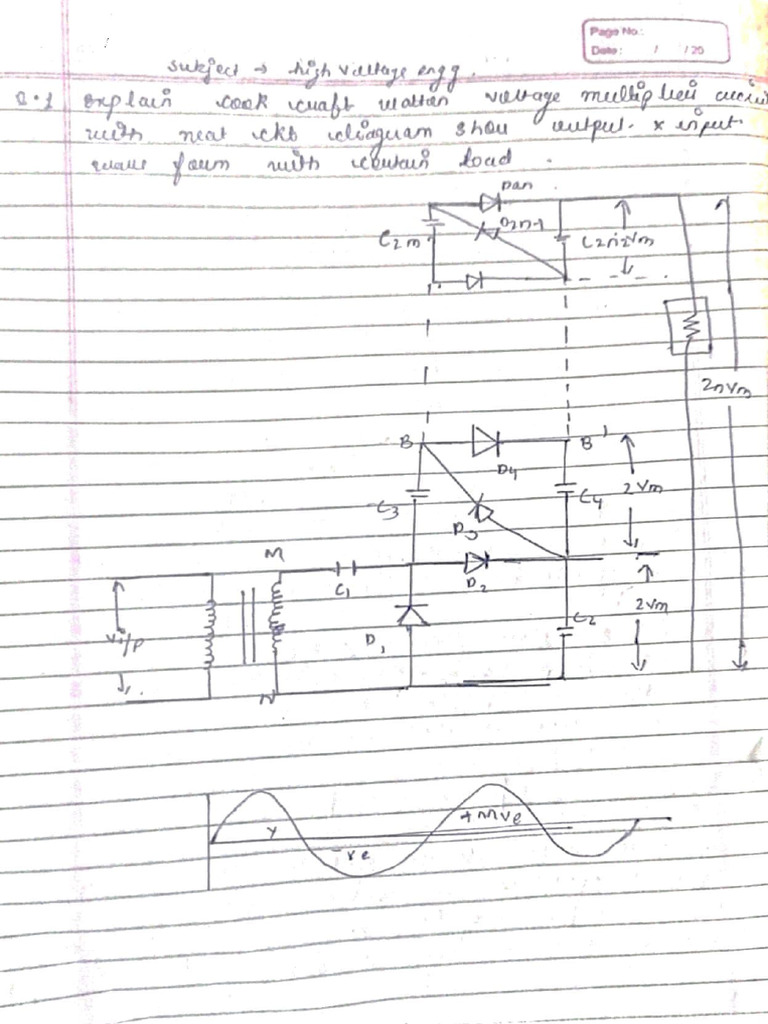 Page No.:
Date: / /20
Subject → high voltage engg.
Q.1 explain cook craft walton voltage multiplier circuit
with neat ckt diagram show output x input
wave form with certain load.
C2m
D2n-1
2Vm
2nVm
B
B'
D4
C3
C4
2Vm
D3
M
C1
D2
2Vm
C2
Vi/p
D1
N
-ve